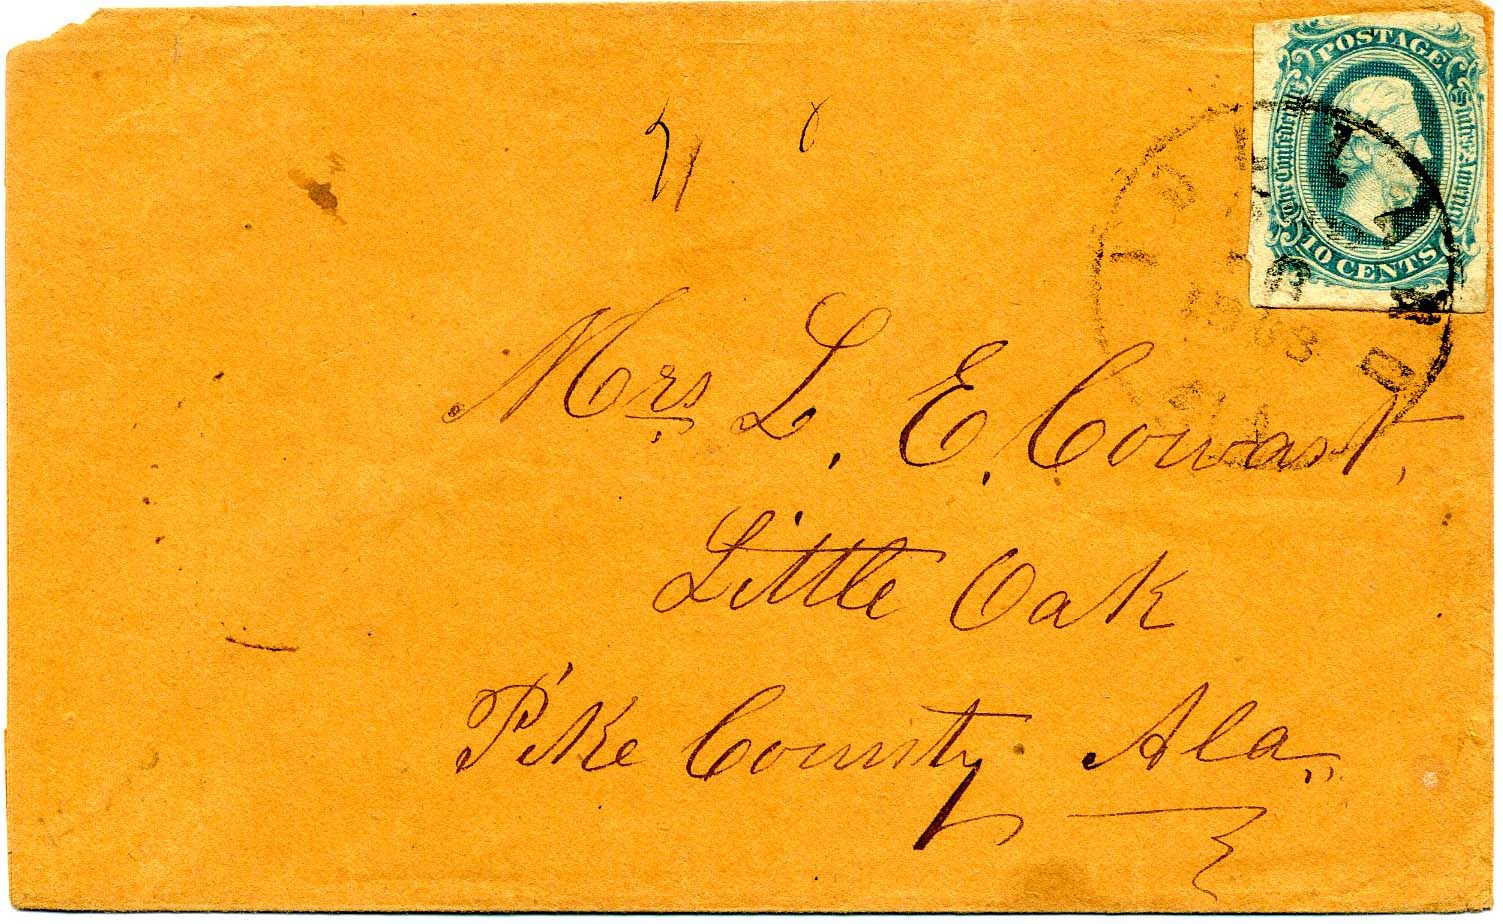 POSTAGE
The Confederate States of America
10 CENTS
3
1863
Mrs L. E. Cowart,
Little Oak
Pike County Ala.